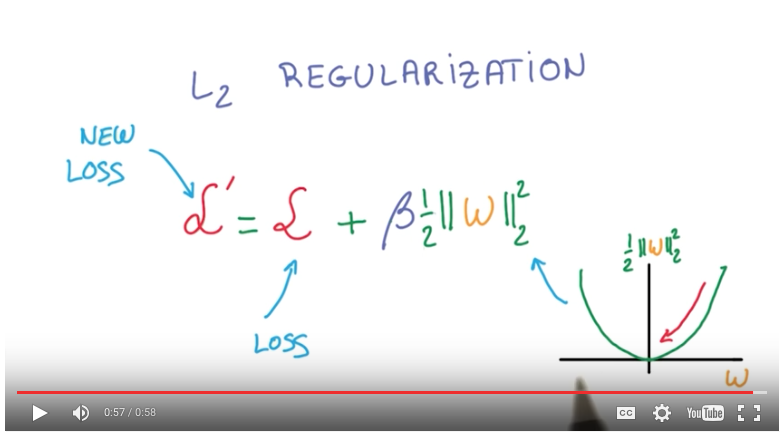 L2 REGULARIZATION
NEW
LOSS
ℒ′ = ℒ + β ½ ||w||₂²
LOSS
½ ||w||₂²
w
0:57 / 0:58
CC
YouTube